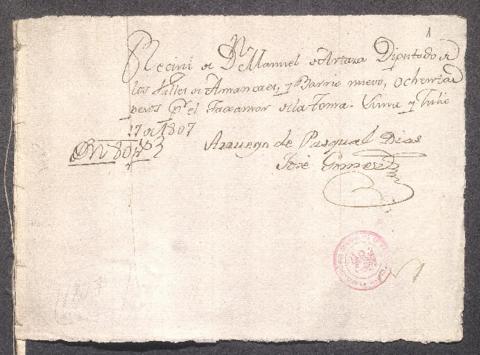 Reciví de Dn. Manuel de Artaza Diputado de
las Calles de Amancaes, y Barrio nuevo, ochenta
pesos pr. el de la toma. Lima y Julio
17 de 1807
Son 80 ps.
Arruego de Pasqual Dias
José Gomez